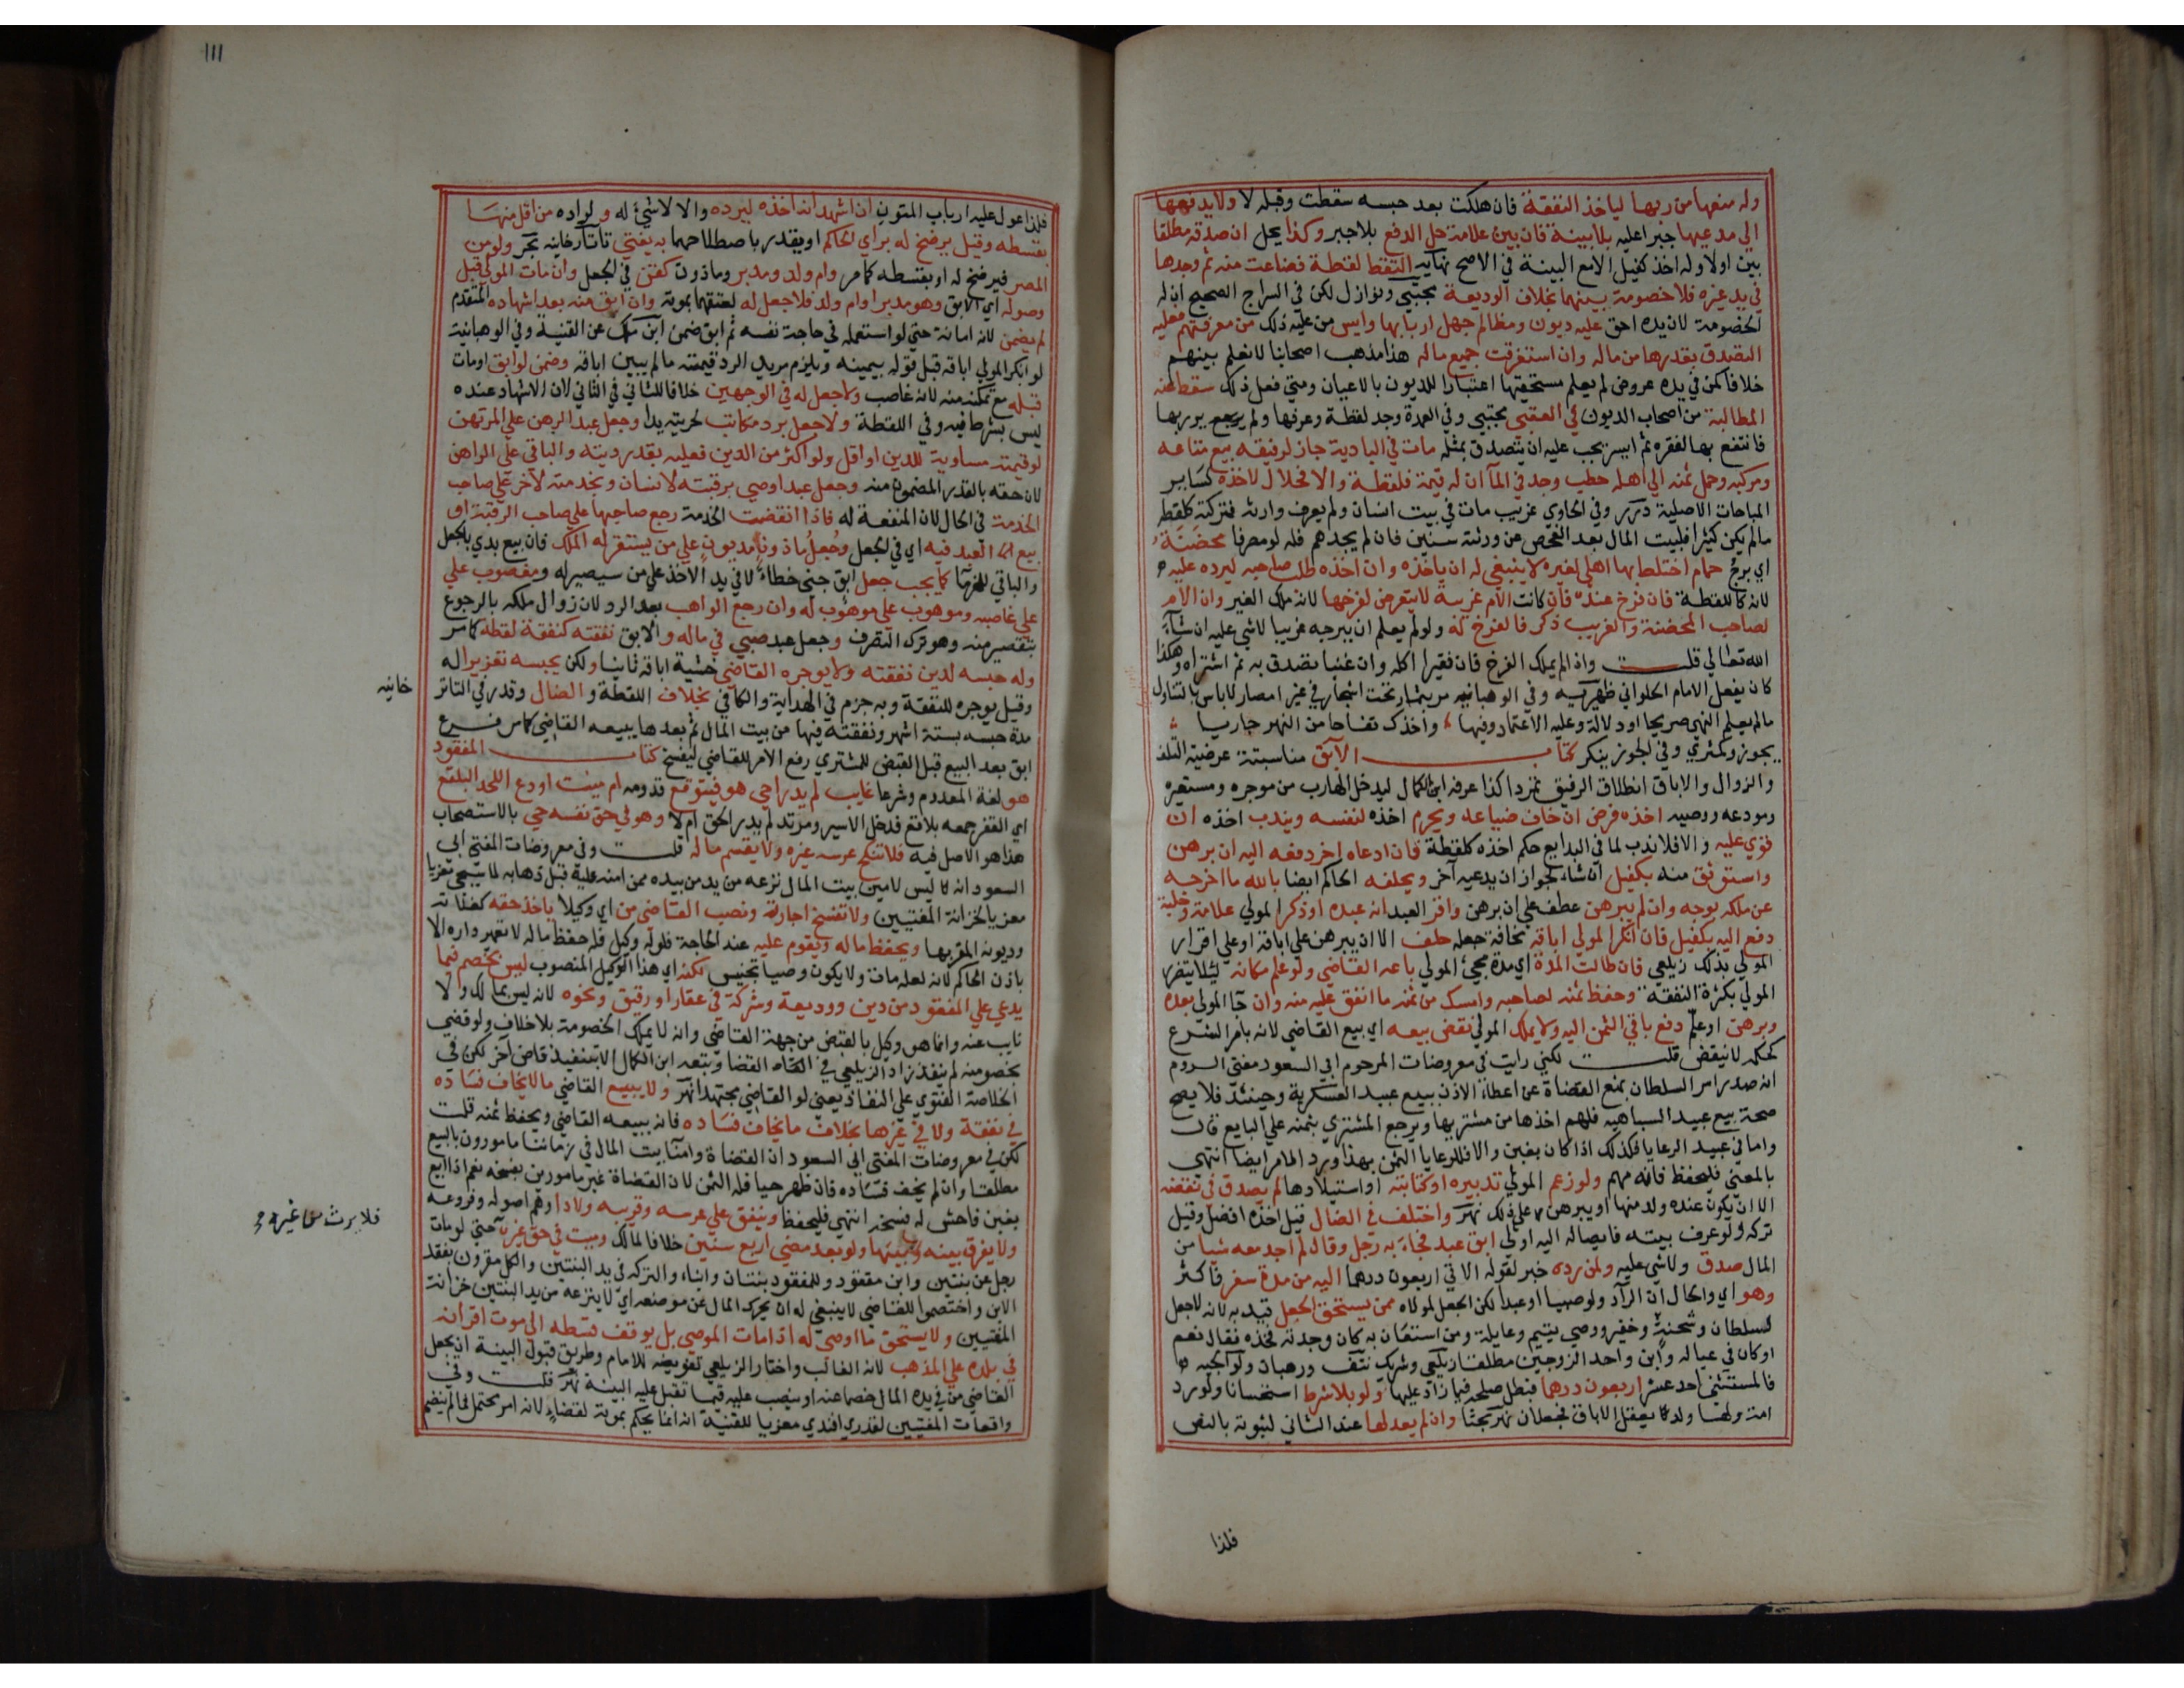 وله منعها من ربها لياخذ النفقة فان هلكت بعد حبسه سقطت وقبله لا ولا يدفعها
الى مدعيها جبرا عليه بلا بينة فان بين علامة حل الدفع بلا جبر وكذا يحل ان صدقه مطلقا
بين اولا وله اخذ كفيل الا مع البينة في الاصح نهاية التقط لقطة فضاعت منه ثم وجدها
في يد غيره فلا خصومة بينهما بخلاف الوديعة مجتبى ونوازل لكن في السراج الصحيح ان له
الخصومة لان يده احق عليه ديون ومظالم جهل اربابها وايس من عليه ذلك من معرفتهم فعليه
التصدق بقدرها من ماله وان استغرقت جميع ماله هذا مذهب اصحابنا لا نعلم بينهم
خلافا كمن في يده عروض لم يعلم مستحقيها اعتبارا للديون بالاعيان ومتى فعل ذلك سقط عنه
المطالبة من اصحاب الديون في العقبى مجتبى وفي العمدة وجد لقطة وعرفها ولم ير ربها
فانتفع بها لفقره ثم ايسر يجب عليه ان يتصدق بمثله مات في البادية جاز لرفيقه بيع متاعه
ومركبه وحمل ثمنه الى اهله حطب وجد في المآ ان له قيمة فلقطة والا فحلال لاخذه كساير
المباحات الاصلية درر وفي الحاوي غريب مات في بيت انسان ولم يعرف وارثه فتركته كلقطه
مالم يكن كثيرا فلبيت المال بعد الفحص عن ورثته سنين فان لم يجدهم فله لو مصرفا محضنة
اي برج حمام اختلط بها اهلي لغيره لا ينبغي له ان ياخذه وان اخذه طلب صاحبه ليرده عليه
لانه كاللقطة فان فرخ عنده فان كانت الام غريبة لا يتعرض لفرخها لانه ملك الغير وان الام
لصاحب المحضنة والغريب ذكر فالفرخ له ولو لم يعلم ان ببرجه غريبا لا شي عليه ان شآء
الله تعالى قلت واذا لم يملك الفرخ فان فقيرا اكله وان غنيا تصدق به ثم اشتراه وهكذا
كان يفعل الامام الحلواني ظهيرية وفي الوهبانيه مر بثمار تحت اشجار في غير امصار لا باس بالتناول
مالم يعلم النهي صريحا او دلالة وعليه الاعتماد وفيها واخذك تفاحا من النهر جاريا
يجوز وكمثري وفي الجوز ينكر كتاب الآبق مناسبته عرضية التلف
والزوال والاباق انطلاق الرقيق تمردا كذا عرفه ابن الكمال ليدخل الهارب من موجره ومستعيره
ومودعه ووصيه اخذه فرض ان خاف ضياعه ويحرم اخذه لنفسه ويندب اخذه ان
قوي عليه والا فلا ندب لما في البدايع حكم اخذه كلقطة فان ادعاه اخر دفعه اليه ان برهن
واستوثق منه بكفيل ان شاء لجواز ان يدعيه آخر ويحلفه الحاكم ايضا بالله ما اخرجه
عن ملكه بوجه وان لم يبرهن عطف على ان برهن واقر العبد انه عبده او ذكر المولي علامة وحلية
دفع اليه بكفيل فان انكر المولي اباقه مخافة جعله حلف الا ان يبرهن على اباقه او على اقرار
المولي بذلك زيلعي فان طالت المدة اي مدة مجئ المولي باعه القاضي ولو علم مكانه ليلا يتضرر
المولي بكثرة النفقه وحفظ ثمنه لصاحبه وامسك من ثمنه ما انفق عليه منه وان جآ المولي بعده
وبرهن او علم دفع باقي الثمن اليه ولا يملك المولي نقض بيعه اي بيع القاضي لانه بامر الشرع
كحكمه لا ينقض قلت لكني رايت في معروضات المرحوم ابي السعود مفتي الروم
انه صدر امر السلطان بمنع القضاة عن اعطاء الاذن ببيع عبيد العسكرية وحينئذ فلا يصح
صحة بيع عبيد السباهيه فلهم اخذها من مشتريها ويرجع المشتري بثمنه على البايع قال
واما في عبيد الرعايا فكذلك اذا كان بغبن والا فللرعايا الثمن بهذا ورد الامر ايضا انتهى
بالمعنى فليحفظ فانه مهم ولو زعم المولي تدبيره او كتابته او استيلادها لم يصدق في نقضه
الا ان يكون عنده ولد منها او يبرهن على ذلك نهر واختلف في الضال قيل اخذه افضل وقيل
تركه ولو عرف بيته فايصاله اليه اولى ابق عبد فجآء به رجل وقال لم اجد معه شيا من
المال صدق ولا شي عليه ولمن رده خبر لقوله الاتي اربعون درهما اليه من مدة سفر فاكثر
وهو اي والحال ان الراد ولو صبيا او عبدا لكن الجعل لمولاه ممن يستحق الجعل قيد به لانه لا جعل
لسلطان وشحنة وخفير ووصي يتيم وعايله ومن استعان به كان وجدته فخذه فقال نعم
او كان في عياله وابن واحد الزوجين مطلقا زيلعي وشريك نتف ورهبان ولو الجيه
فالمستثنى احد عشر اربعون درهما فبطل صلحه فيما زاد عليها ولو بلا شرط استحسانا ولو رد
امة ولها ولد يعقل الاباق فجعلان نهر بحثا وان لم يعدلها عند الثاني لثبوته بالنص
فلذا
١١١
فلذا عول عليه ارباب المتون ان اشهد انه اخذه ليرده والا لا شيئ له ولراده من اقل منها
بقسطه وقيل يرضخ له براي الحاكم او يقدر باصطلاحهما به يفتي تاتارخانيه بحر ولو من
المصر فيرضخ له او بقسطه كما مر وام ولد ومدبر وماذون كقن في الجعل وان مات المولي قبل
وصوله اي الابق وهو مدبر او ام ولد فلا جعل له لعتقهما بموته وان ابق منه بعد اشهاده المتقدم
لم يضمن لانه امانة حتي لو استعمله في حاجة نفسه ثم ابق ضمن ابن ملك عن القنية وفي الوهبانية
لو انكر المولي اباقه قبل قوله بيمينه ويلزم مريد الرد قيمته مالم يبين اباقه وضمن لو ابق او مات
قبله مع تمكنه منه لانه غاصب ولا جعل له في الوجهين خلافا للثاني في الثاني لان الاشهاد عنده
ليس بشرط فيه وفي اللقطة ولا جعل برد مكاتب لحريته يدا وجعل عبد الرهن على المرتهن
لو قيمته مساوية للدين او اقل ولو اكثر من الدين فعليه بقدر دينه والباقي على الراهن
لان حقه بالقدر المضمون منه وجعل عبد اوصي برقبته لانسان وبخدمته لآخر على صاحب
الخدمة في الحال لان المنفعة له فاذا انقضت الخدمة رجع صاحبها على صاحب الرقبة او
بيع العبد فيه اي في الجعل وجعل ماذون مديون على من يستقر له الملك فان بيع بدي بالجعل
والباقي للغرمآ كما يجب جعل ابق جنى خطاء لا في يد الاخذ على من سيصير له ومغصوب على
على غاصبه وموهوب على موهوب له وان رجع الواهب بعد الرد لان زوال ملكه بالرجوع
بتقصير منه وهو تركه التصرف وجعل عبد صبي في ماله والابق نفقته كنفقة لقطه كما مر
وله حبسه لدين نفقته ولا يوجره القاضي خشية اباقه ثانيا ولكن يحبسه تعزيرا له
وقيل يوجره للنفقة وبه جزم في الهداية والكافي بخلاف اللقطة والضال وقدر في التاتر
خانيه
مدة حبسه بستة اشهر ونفقته فيها من بيت المال ثم بعدها يبيعه القاضي كما مر فرع
ابق بعد البيع قبل القبض للمشتري رفع الامر للقاضي ليفسخ كتاب المفقود
هو لغة المعدوم وشرعا غايب لم يدر احي هو فيتوقع قدومه ام ميت اودع اللحد البلقع
اي القفر جمعه بلاقع فدخل الاسير ومرتد لم يدر الحق ام لا وهو في حق نفسه حي بالاستصحاب
هذا هو الاصل فيه فلا تنكح عرسه غيره ولا يقسم ماله قلت وفي معروضات المفتي ابي
السعود انه ليس لامين بيت المال نزعه من يد من بيده ممن امنه عليه قبل ذهابه لما سيجي معزيا
معزيا لخزانة المفتيين ولا تفسخ اجارته ونصب القاضي من اي وكيلا ياخذ حقه كغلاته
وديونه المقر بها ويحفظ ماله ويقوم عليه عند الحاجة فلو له وكيل فله حفظ ماله لا تعمير داره الا
باذن الحاكم لانه لعله مات ولا يكون وصيا تجنيس لكنه اي هذا الوكيل المنصوب ليس بخصم فيما
يدعي على المفقود من دين ووديعة وشركة في عقار او رقيق ونحوه لانه ليس بمالك ولا
نايب عنه وانما هو وكيل بالقبض من جهة القاضي وانه لا يملك الخصومة بلا خلاف ولو قضي
بخصومته لم ينفذ زاد الزيلعي في القضا وتبعه ابن الكمال الا بتنفيذ قاض آخر لكن في
الخلاصة الفتوي على النفاذ يعني لو القاضي مجتهدا نهر ولا يبيع القاضي مالا يخاف فساده
في نفقة ولا في غيرها بخلاف ما يخاف فساده فانه يبيعه القاضي ويحفظ ثمنه قلت
لكن في معروضات المفتي ابي السعود ان القضاة وامنآ بيت المال في زماننا مامورون بالبيع
مطلقا وان لم يخف فساده فان ظهر حيا فله الثمن لان القضاة غير مامورين بفسخه نعم اذا ابيع
بغبن فاحش له فسخه انتهى فليحفظ وينفق على عرسه وقريبه ولادا وهم اصوله وفروعه
ولا يفرق بينه وبينها ولو بعد مضي اربع سنين خلافا لمالك وميت في حق غيره حتى لو مات
فلا يرث من غيره
رجل عن بنتين وابن مفقود وللمفقود بنتان وابناء والتركه في يد البنتين والكل مقرون بفقد
الابن واختصموا للقاضي لا ينبغي له ان يحرك المال عن موضعه اي لا ينزعه من يد البنتين خزانة
المفتيين ولا يستحق ما اوصى له اذا مات الموصي بل يوقف قسطه الى موت اقرانه
في بلده على المذهب لانه الغالب واختار الزيلعي تفويضه للامام وطريق قبول البينة ان يجعل
القاضي من في يده المال خصما عنه او ينصب عليه قيما تقبل عليه البينة نهر قلت وفي
واقعات المفتيين لقدري افندي معزيا للقنية انه انما يحكم بموته لقضاء لانه امر محتمل فما لم ينضم